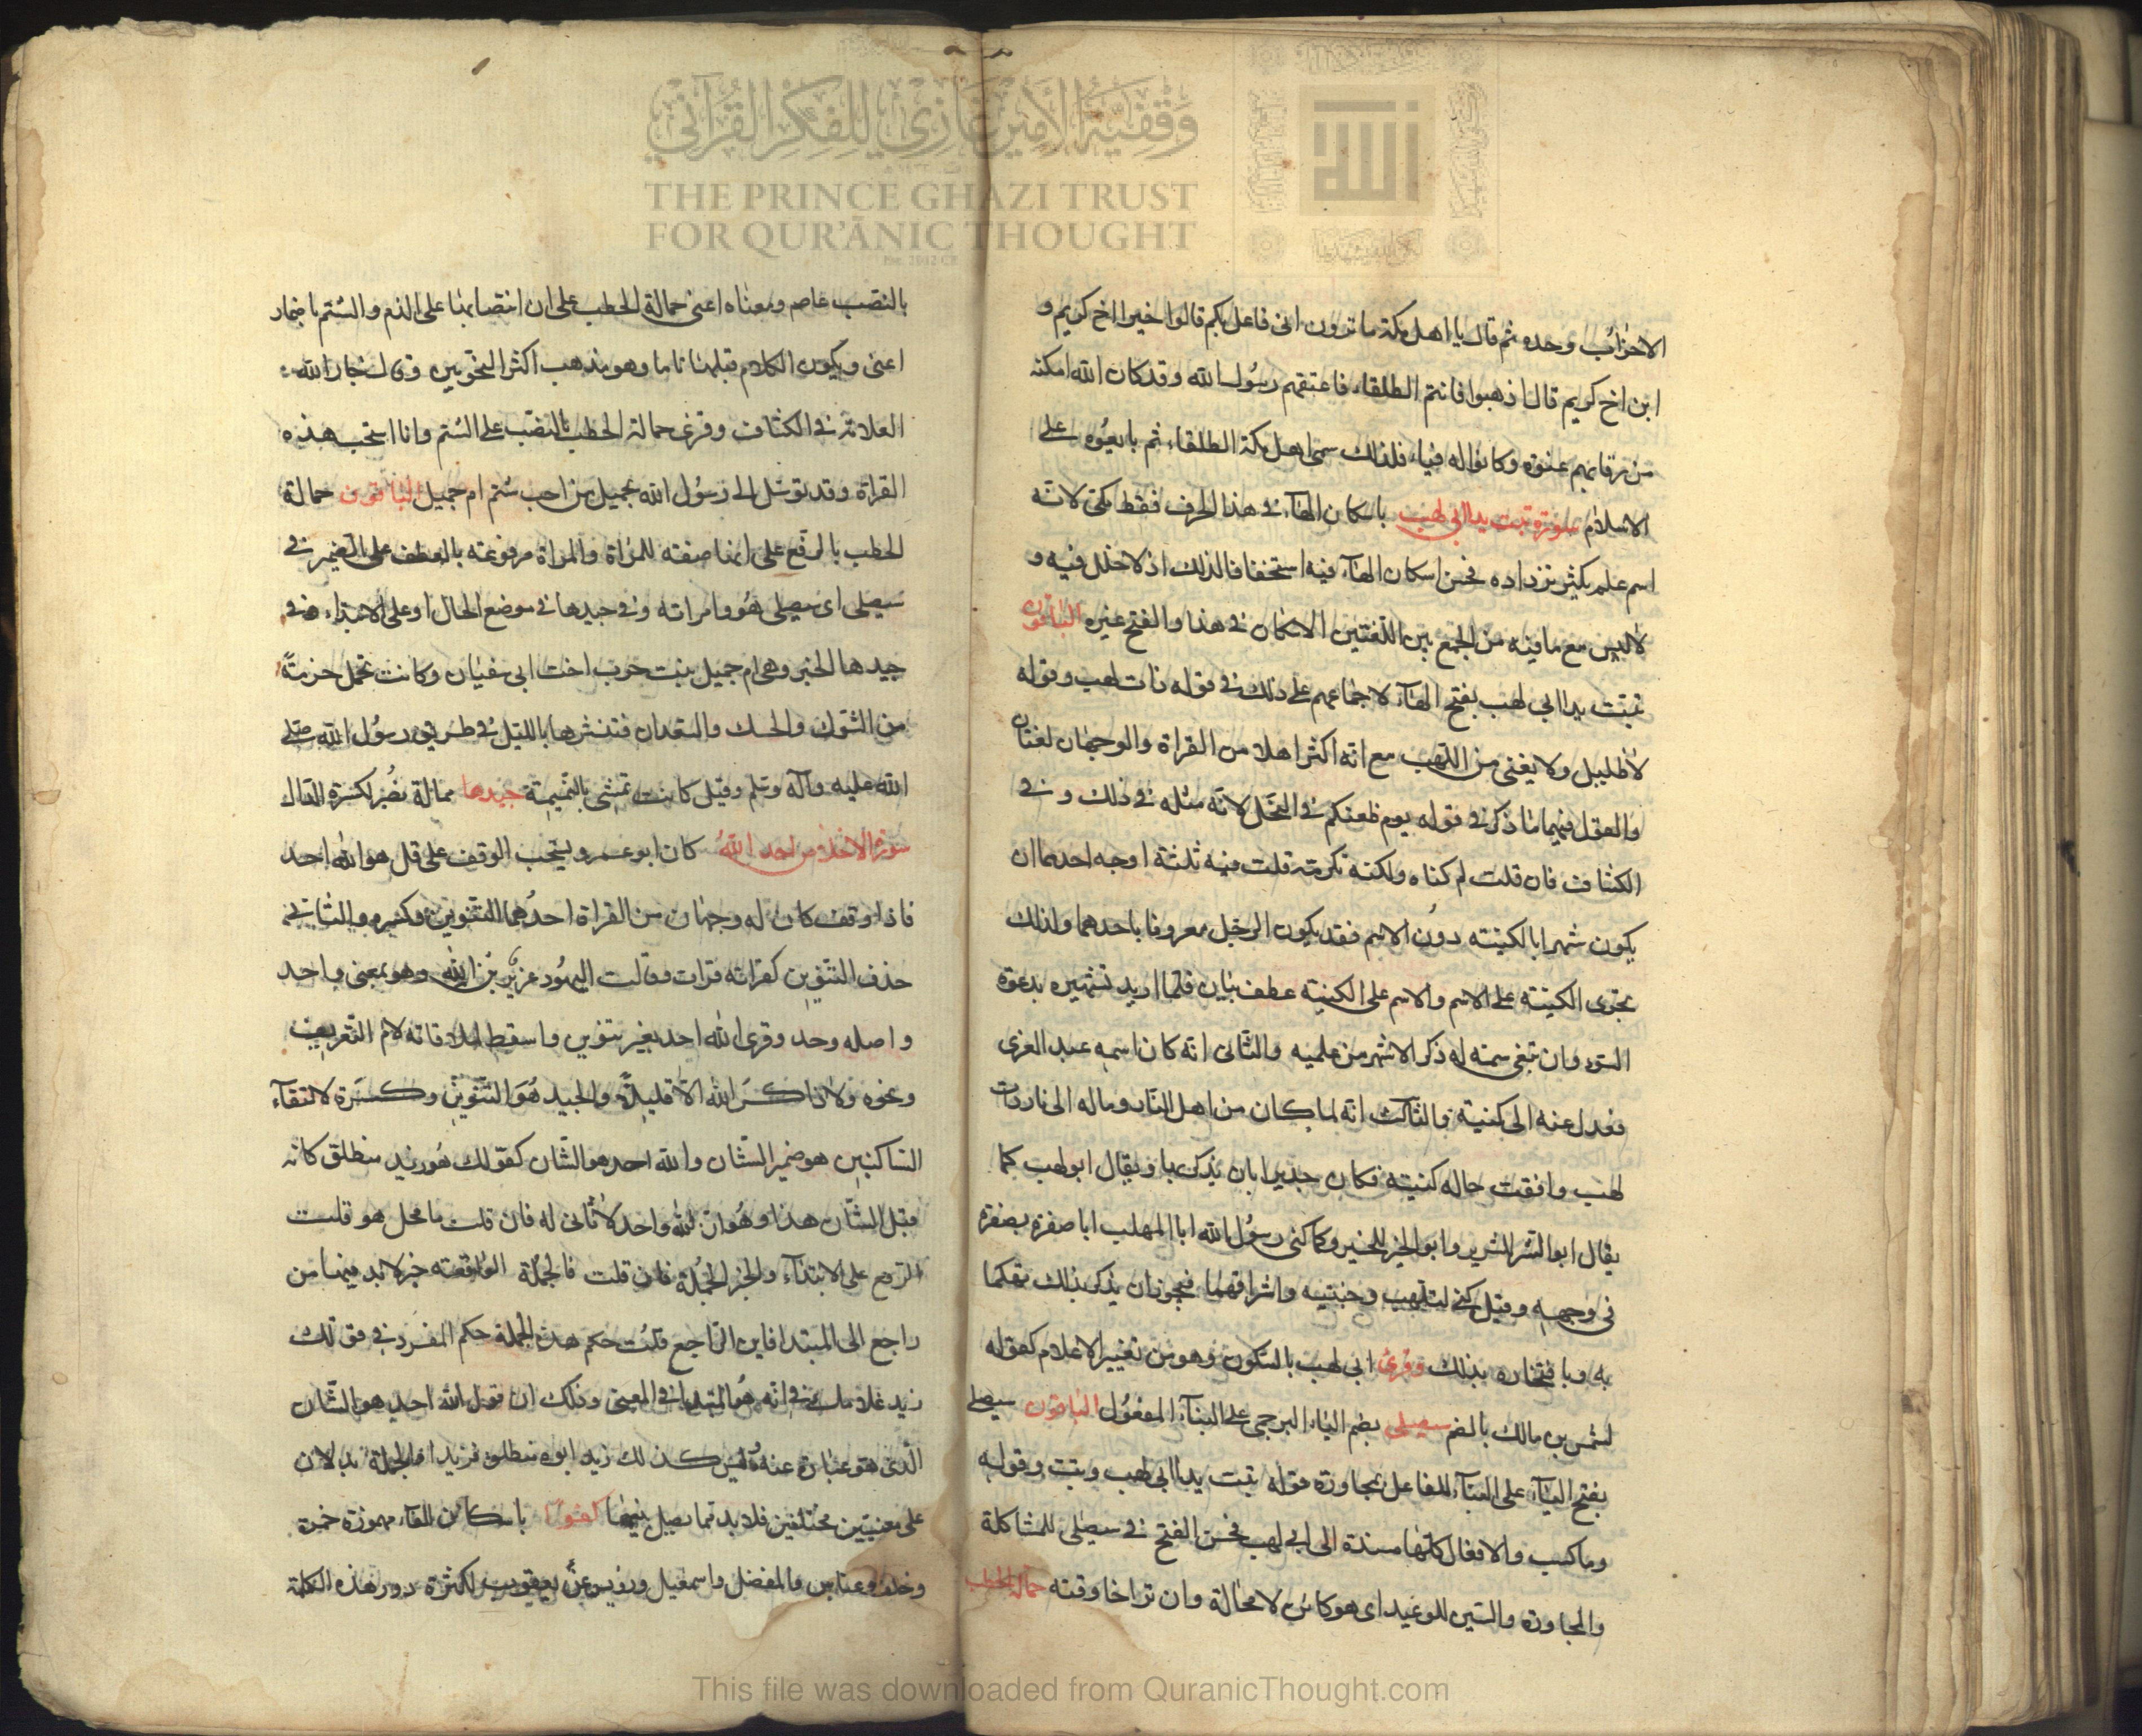 وقفية الأمير غازي للفكر القرآني
THE PRINCE GHAZI TRUST
FOR QUR'ĀNIC THOUGHT
الاحزاب وحده ثم قال يا اهل مكة ما ترون انى فاعل بكم قالوا خيرا اخ كريم و
ابن اخ كريم قال اذهبوا فانتم الطلقاء فاعتقهم رسول الله وقد كان الله امكنه
من رقابهم عنوة وكانوا له فيأ، فلذلك سمى اهل مكة الطلقاء ثم بايعوه على
الاسلام سورة تبت يدا ابى لهب باسكان الهاء فى هذا الحرف فقط مكى لانه
اسم علم يكثر ترداده فحسن اسكان الهاء فيه استخفافا لذلك اذ لا خلل فيه و
لا لبس مع ما فيه من الجمع بين اللغتين الاسكان فى هذا والفتح غيره الباقون
تبت يدا ابى لهب بفتح الهاء لاجماعهم على ذلك فى قوله ذات لهب وقوله
لا ظليل ولا يغنى من اللهب مع انه اكثر اهلا من القراة والوجهان لغتان
والقول فيهما ما ذكر فى قوله يوم ظعنكم فى النحل لانه مثله فى ذلك و فى
الكشاف فان قلت لم كناه ولكنه تكرمة قلت فيه ثلثة اوجه احدها ان
يكون شهرا بالكنية دون الاسم فقد يكون الرجل معروفا باحدهما ولذلك
تجرى الكنية على الاسم والاسم على الكنية عطف بيان فلما اريد تشهيره بدعوة
السوء وان تبقى سمة له ذكر الاشهر من علميه والثانى انه كان اسمه عبد العزى
فعدل عنه الى كنيته والثالث انه لما كان من اهل النار وماله الى نار ذات
لهب وافقت حاله كنيته فكان جديرا بان يذكر بها ويقال ابو لهب كما
يقال ابو الشر للشرير وابو الخير للخير وكما كنى رسول الله ابا المهلب ابا صفرة بصفرة
فى وجهه وقيل كنى لتلهب وجنتيه واشراقهما فيجوز ان يذكر بذلك تهكما
به وبافتخاره بذلك وقرئ ابى لهب بالسكون وهو من تغيير الاعلام كقوله
لشمس بن مالك بالضم سيصلى بضم الياء البرجمى على البناء المفعول الباقون سيصلى
بفتح الياء على البناء للفاعل لمجاورة قوله تبت يدا ابى لهب وتب وقوله
وما كسب والافعال كلها مسندة الى ابى لهب فحسن الفتح فى سيصلى للمشاكلة
والمجاورة والسين للوعيد اى هو كائن لا محالة وان تراخا وقته حمالة الحطب
بالنصب عاصم ومعناه اعنى حمالة الحطب على ان انتصابها على الذم والشتم باضمار
اعنى ويكون الكلام قبلها تاما وهو مذهب اكثر النحويين وقال جار الله
العلامة فى الكشاف وقرئ حمالة الحطب بالنصب على الشتم وانا استحب هذه
القراة وقد توسل الى رسول الله بجميل من احب شتم ام جميل الباقون حمالة
الحطب بالرفع على انها صفته للمراة والمراة مرفوعة بالعطف على الضمير فى
سيصلى اى سيصلى هو وامراته وفى جيدها فى موضع الحال او على الابتداء وفى
جيدها الخبر وهى ام جميل بنت حرب اخت ابى سفيان وكانت تحمل حزمة
من الشوك والحسك والسعدان فتنثرها بالليل فى طريق رسول الله صلى
الله عليه وآله وسلم وقيل كانت تمشى بالنميمة جيدها ممالة نصر لكسرة الدال
سورة الاخلاص احد الله كان ابو عمرو يستحب الوقف على قل هو الله احد
فاذا وقف كان له وجهان من القراة احدهما التنوين وكسره والثانى
حذف التنوين كقراته قرات وقالت اليهود عزير بن الله وهو بمعنى واحد
واصله وحد وقرئ الله احد بغير تنوين واسقط لملاقاته لام التعريف
ونحوه ولا ذاكر الله الا قليلا والجيد هو التنوين وكسرة لالتقاء
الساكنين هو ضمير الشان والله احد هو الشان كقولك هو زيد منطلق كانه
قيل الشان هذا وهو ان الله واحد لا ثانى له فان قلت ما محل هو قلت
الرفع على الابتداء والخبر الجملة فان قلت فالجملة الواقعة خبر لا بد فيها من
راجع الى المبتدا فاين الراجع قلت حكم هذه الجملة حكم المفرد فى قولك
زيد غلامك فى انه هو المبتدا فى المعنى وذلك ان قوله الله احد هو الشان
الذى هو عبارة عنه وليس كذلك زيد ابوه منطلق فزيد والجملة يدلان
على معنيين مختلفين فلا بد مما يصل بينهما كفوا باسكان الفاء مهموزة حمزة
وخلف وعباس والمفضل واسمعيل ورويس عن يعقوب لكثرة دور هذه الكلمة
This file was downloaded from QuranicThought.com